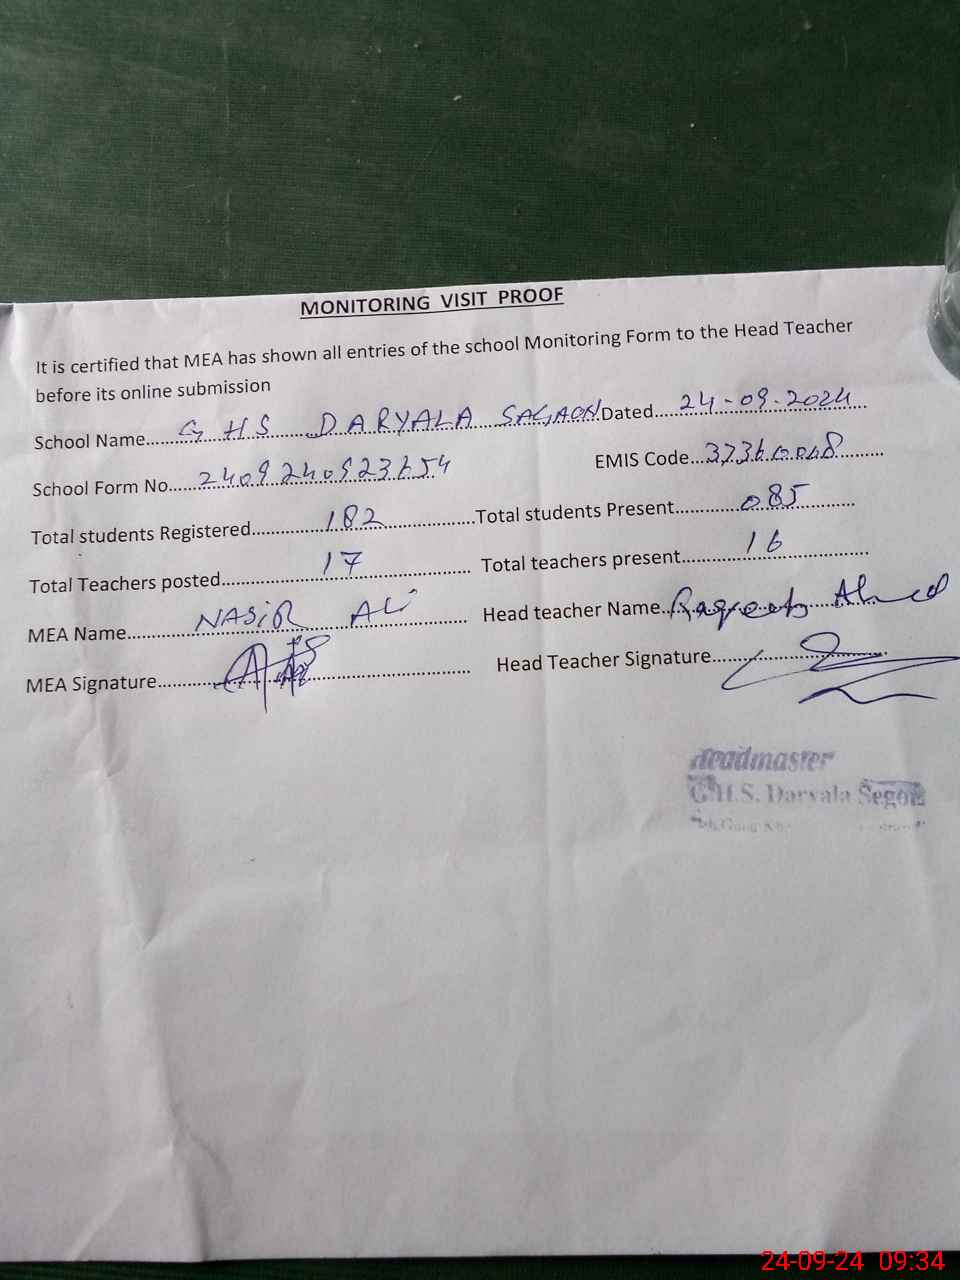 MONITORING VISIT PROOF
It is certified that MEA has shown all entries of the school Monitoring Form to the Head Teacher
before its online submission
School Name......GHS DARYALA SAGAON Dated....24-09-2024
School Form No......2409240923654 EMIS Code...37360048
Total students Registered............182 Total students Present............085
Total Teachers posted............17 Total teachers present............16
MEA Name............NASIR ALI Head teacher Name..Ahmed
MEA Signature............ Head Teacher Signature............
Headmaster
G.H.S. Daryala Segon
24-09-24 09:34